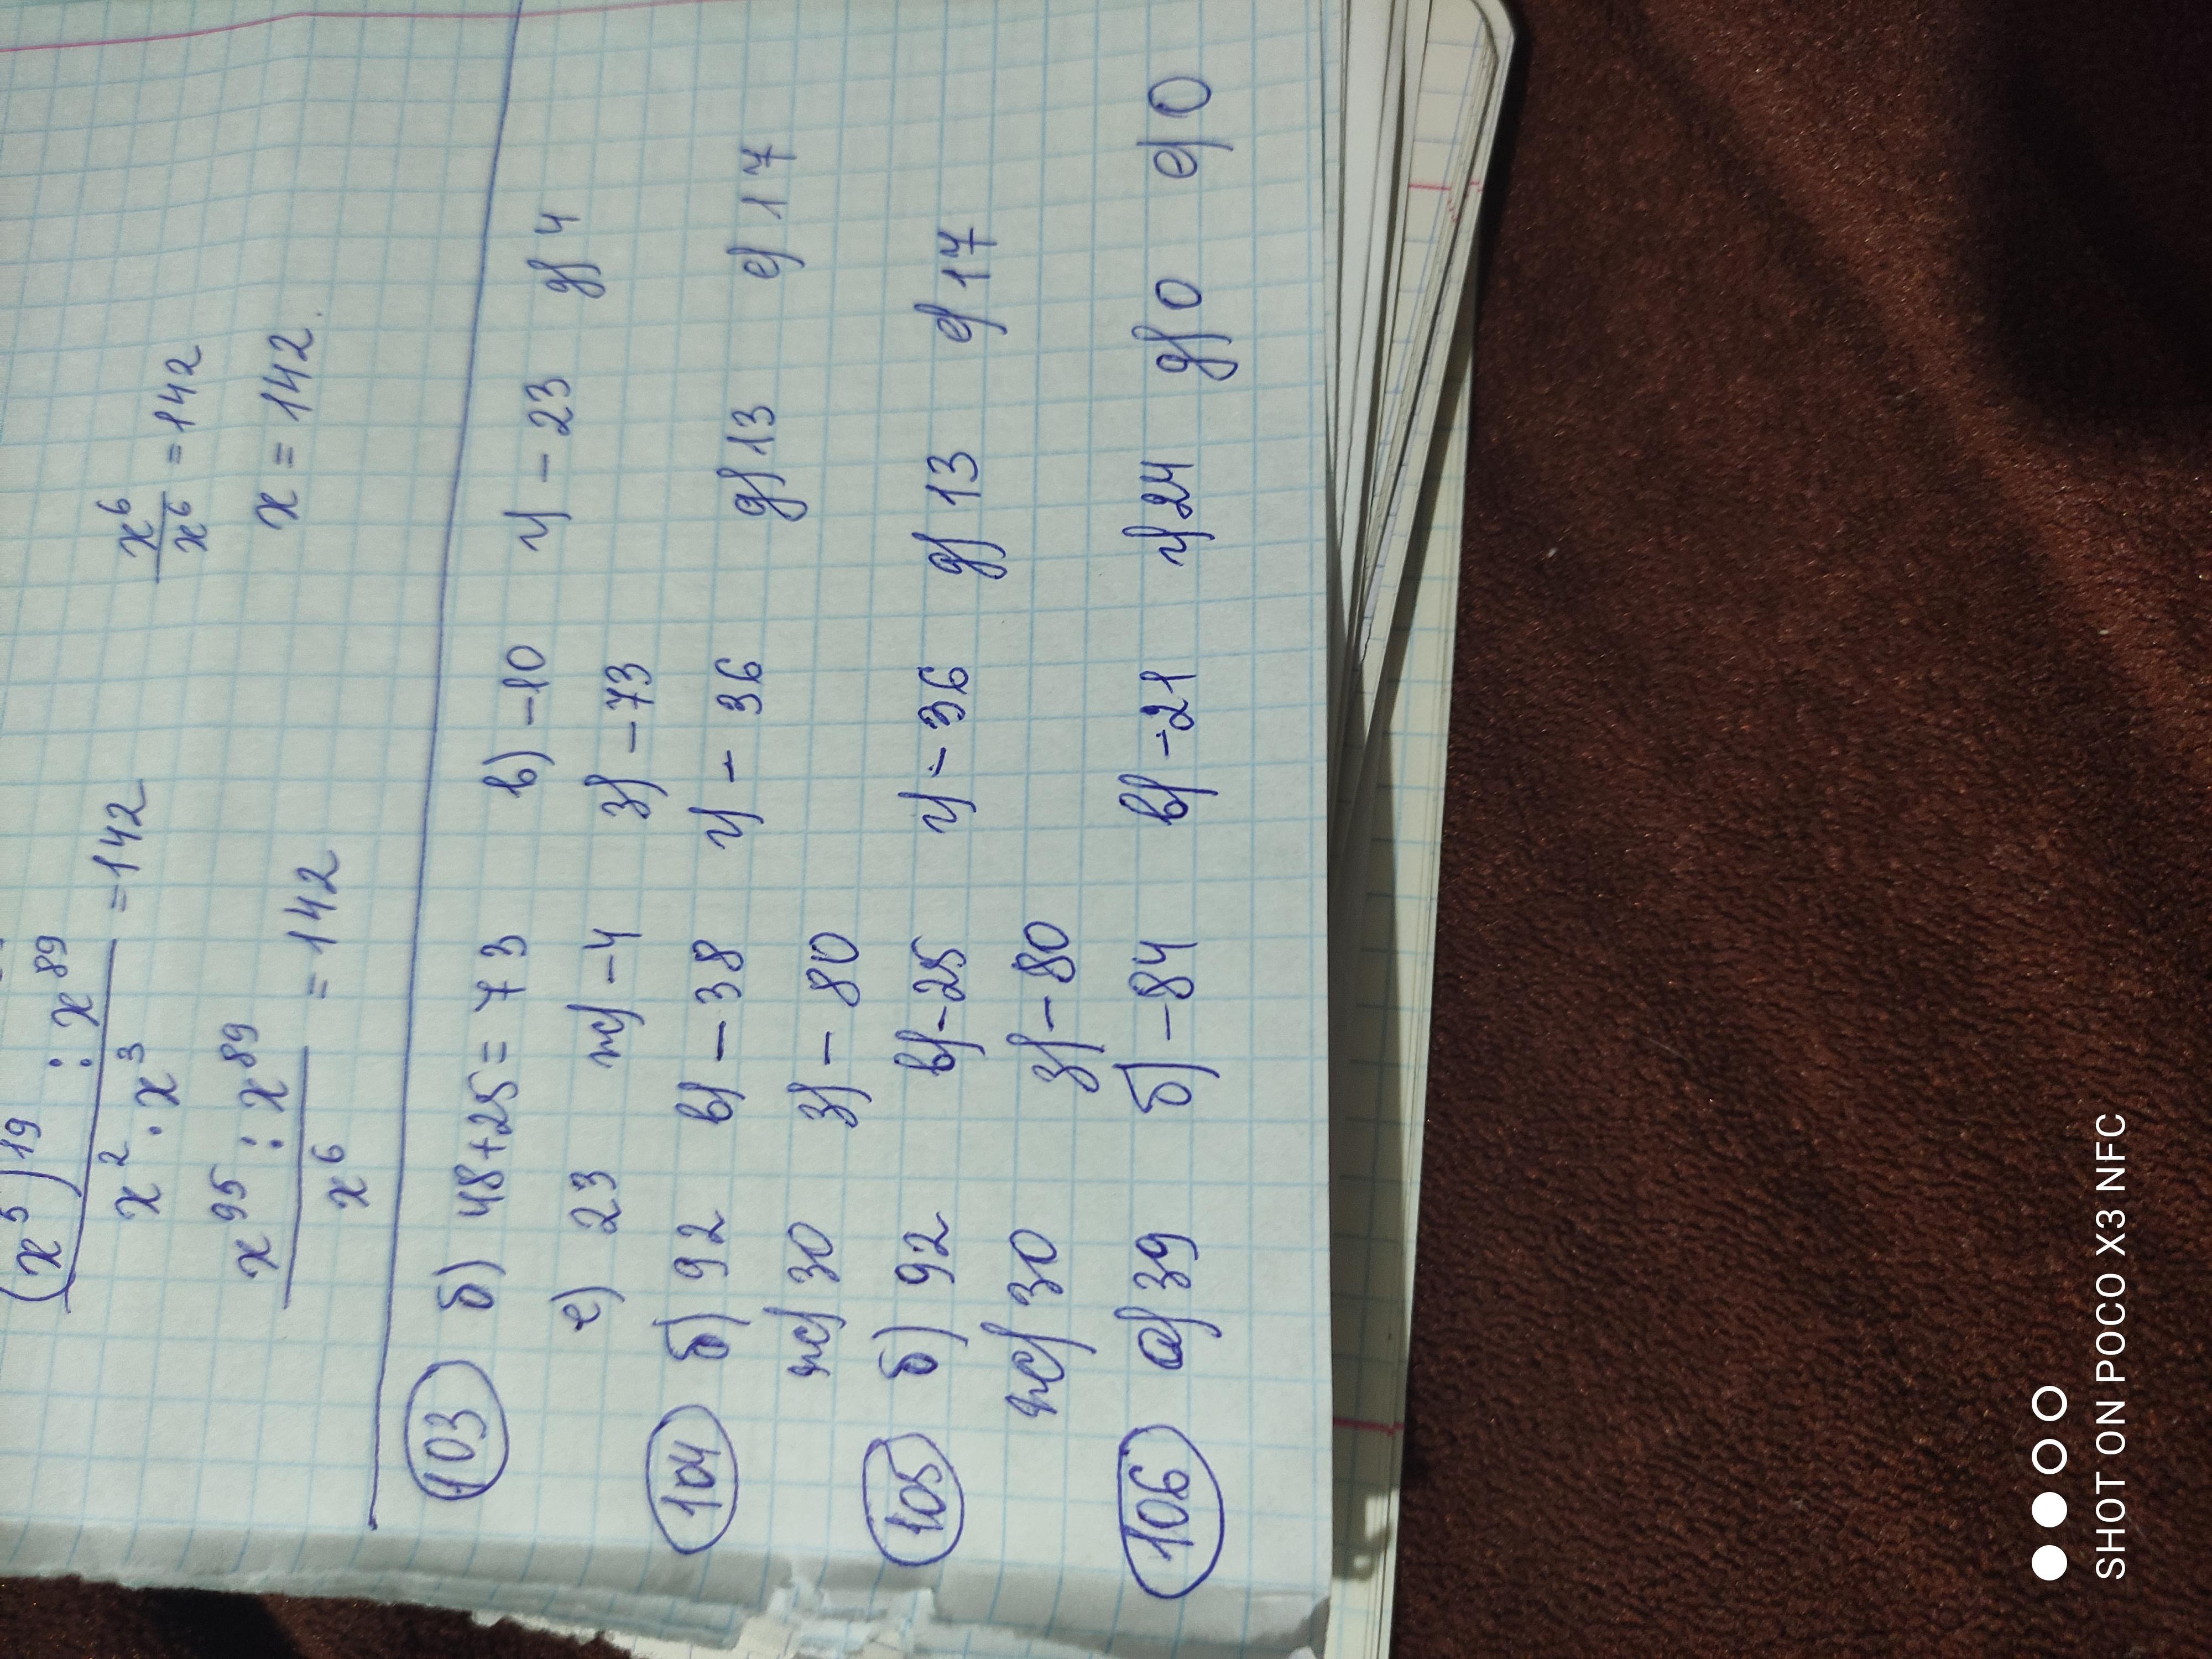 (x⁵)¹⁹ : x⁸⁹ / x² · x³ = 142
x⁶ / x⁶ = 142
x⁹⁵ : x⁸⁹ / x⁶ = 142
x = 142.
103 б) 48+25 = 73 в) -10 г) - 23 д) 4
е) 23 ж) -4 з) -73
104 б) 92 в) - 38 г) - 36 д) 13 е) 17
ж) 30 з) - 80
105 б) 92 в) -25 г) - 36 д) 13 е) 17
ж) 30 з) - 80
106 а) 39 б) -84 в) -21 г) 24 д) 0 е) 0
SHOT ON POCO X3 NFC